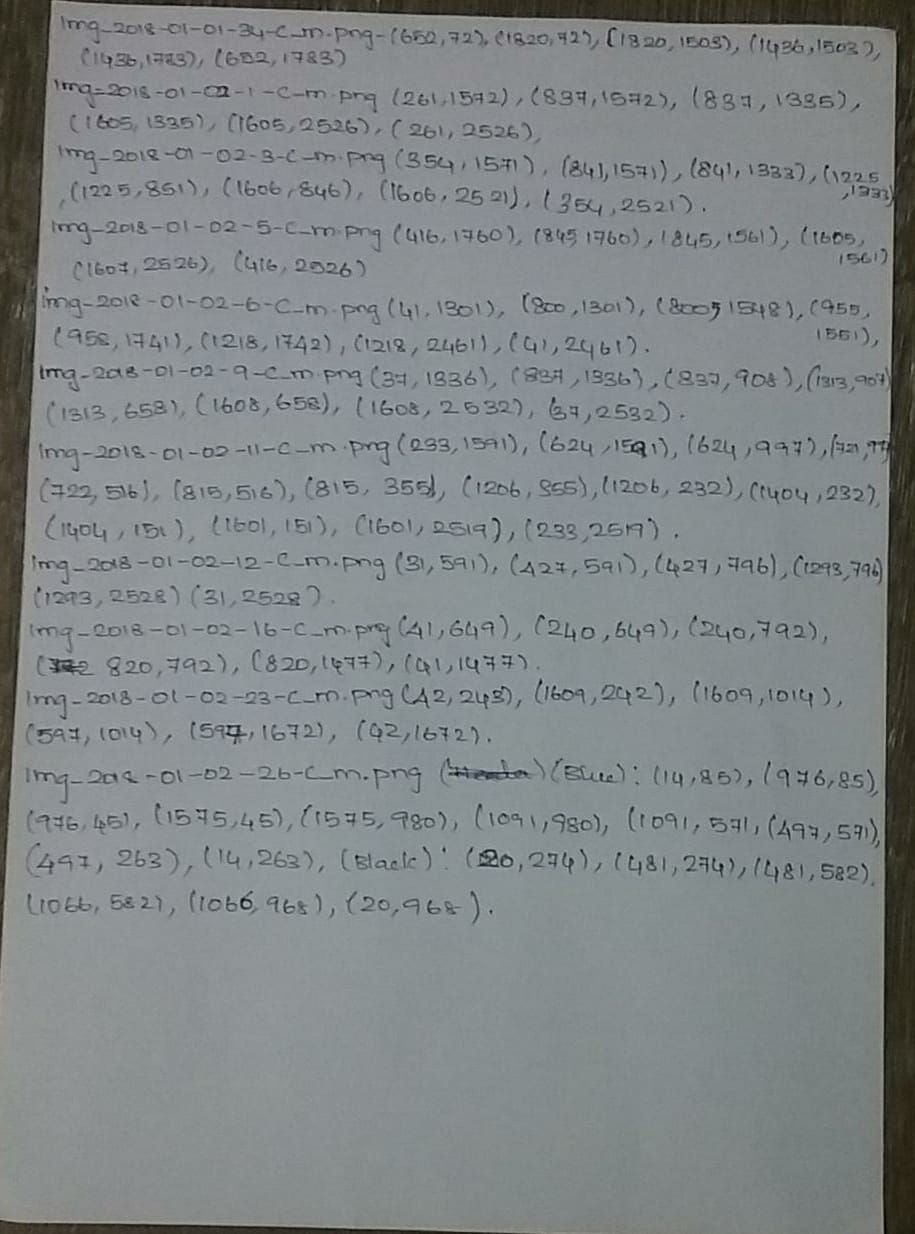 Img_2018-01-01-34-C_m.png-(652,72), (1820,72), (1820,1503), (1436,1503),
(1436,1783), (652,1783)
Img-2018-01-02-1-C-m.png (261,1572), (837,1572), (837,1335),
(1605,1335), (1605,2526), (261,2526),
Img_2018-01-02-3-C_m.png (354,1571), (841,1571), (841,1333), (1225
,1333)
,(1225,851), (1606,846), (1606,2521), (354,2521).
Img-2018-01-02-5-C_m.png (416,1760), (845 1760), (845,1561), (1605,
1561)
(1607,2526), (416,2526)
Img-2018-01-02-6-C_m.png (41,1301), (800,1301), (800,1548), (955,
1551),
(958,1741), (1218,1742), (1218,2461), (41,2461).
Img-2018-01-02-9-C_m.png (37,1336), (837,1336), (837,908), (1313,907)
(1313,658), (1608,658), (1608,2532), (37,2532).
Img-2018-01-02-11-C_m.png (233,1591), (624,1591), (624,997),
(722,516), (815,516), (815,355), (1206,355), (1206,232), (1404,232),
(1404,151), (1601,151), (1601,2519), (233,2519).
Img_2018-01-02-12-C_m.png (31,591), (427,591), (427,796), (1293,796)
(1293,2528) (31,2528).
Img_2018-01-02-16-C_m.png (41,649), (240,649), (240,792),
( 820,792), (820,1477), (41,1477).
Img_2018-01-02-23-C_m.png (42,243), (1609,242), (1609,1014),
(597,1014), (597,1672), (42,1672).
Img_2018-01-02-26-C_m.png (Blue): (14,85), (976,85),
(976,45), (1575,45), (1575,980), (1091,980), (1091,571, (497,571),
(497,263), (14,263), (Black): (20,274), (481,274), (481,582),
(1066,582), (1066,968), (20,968).